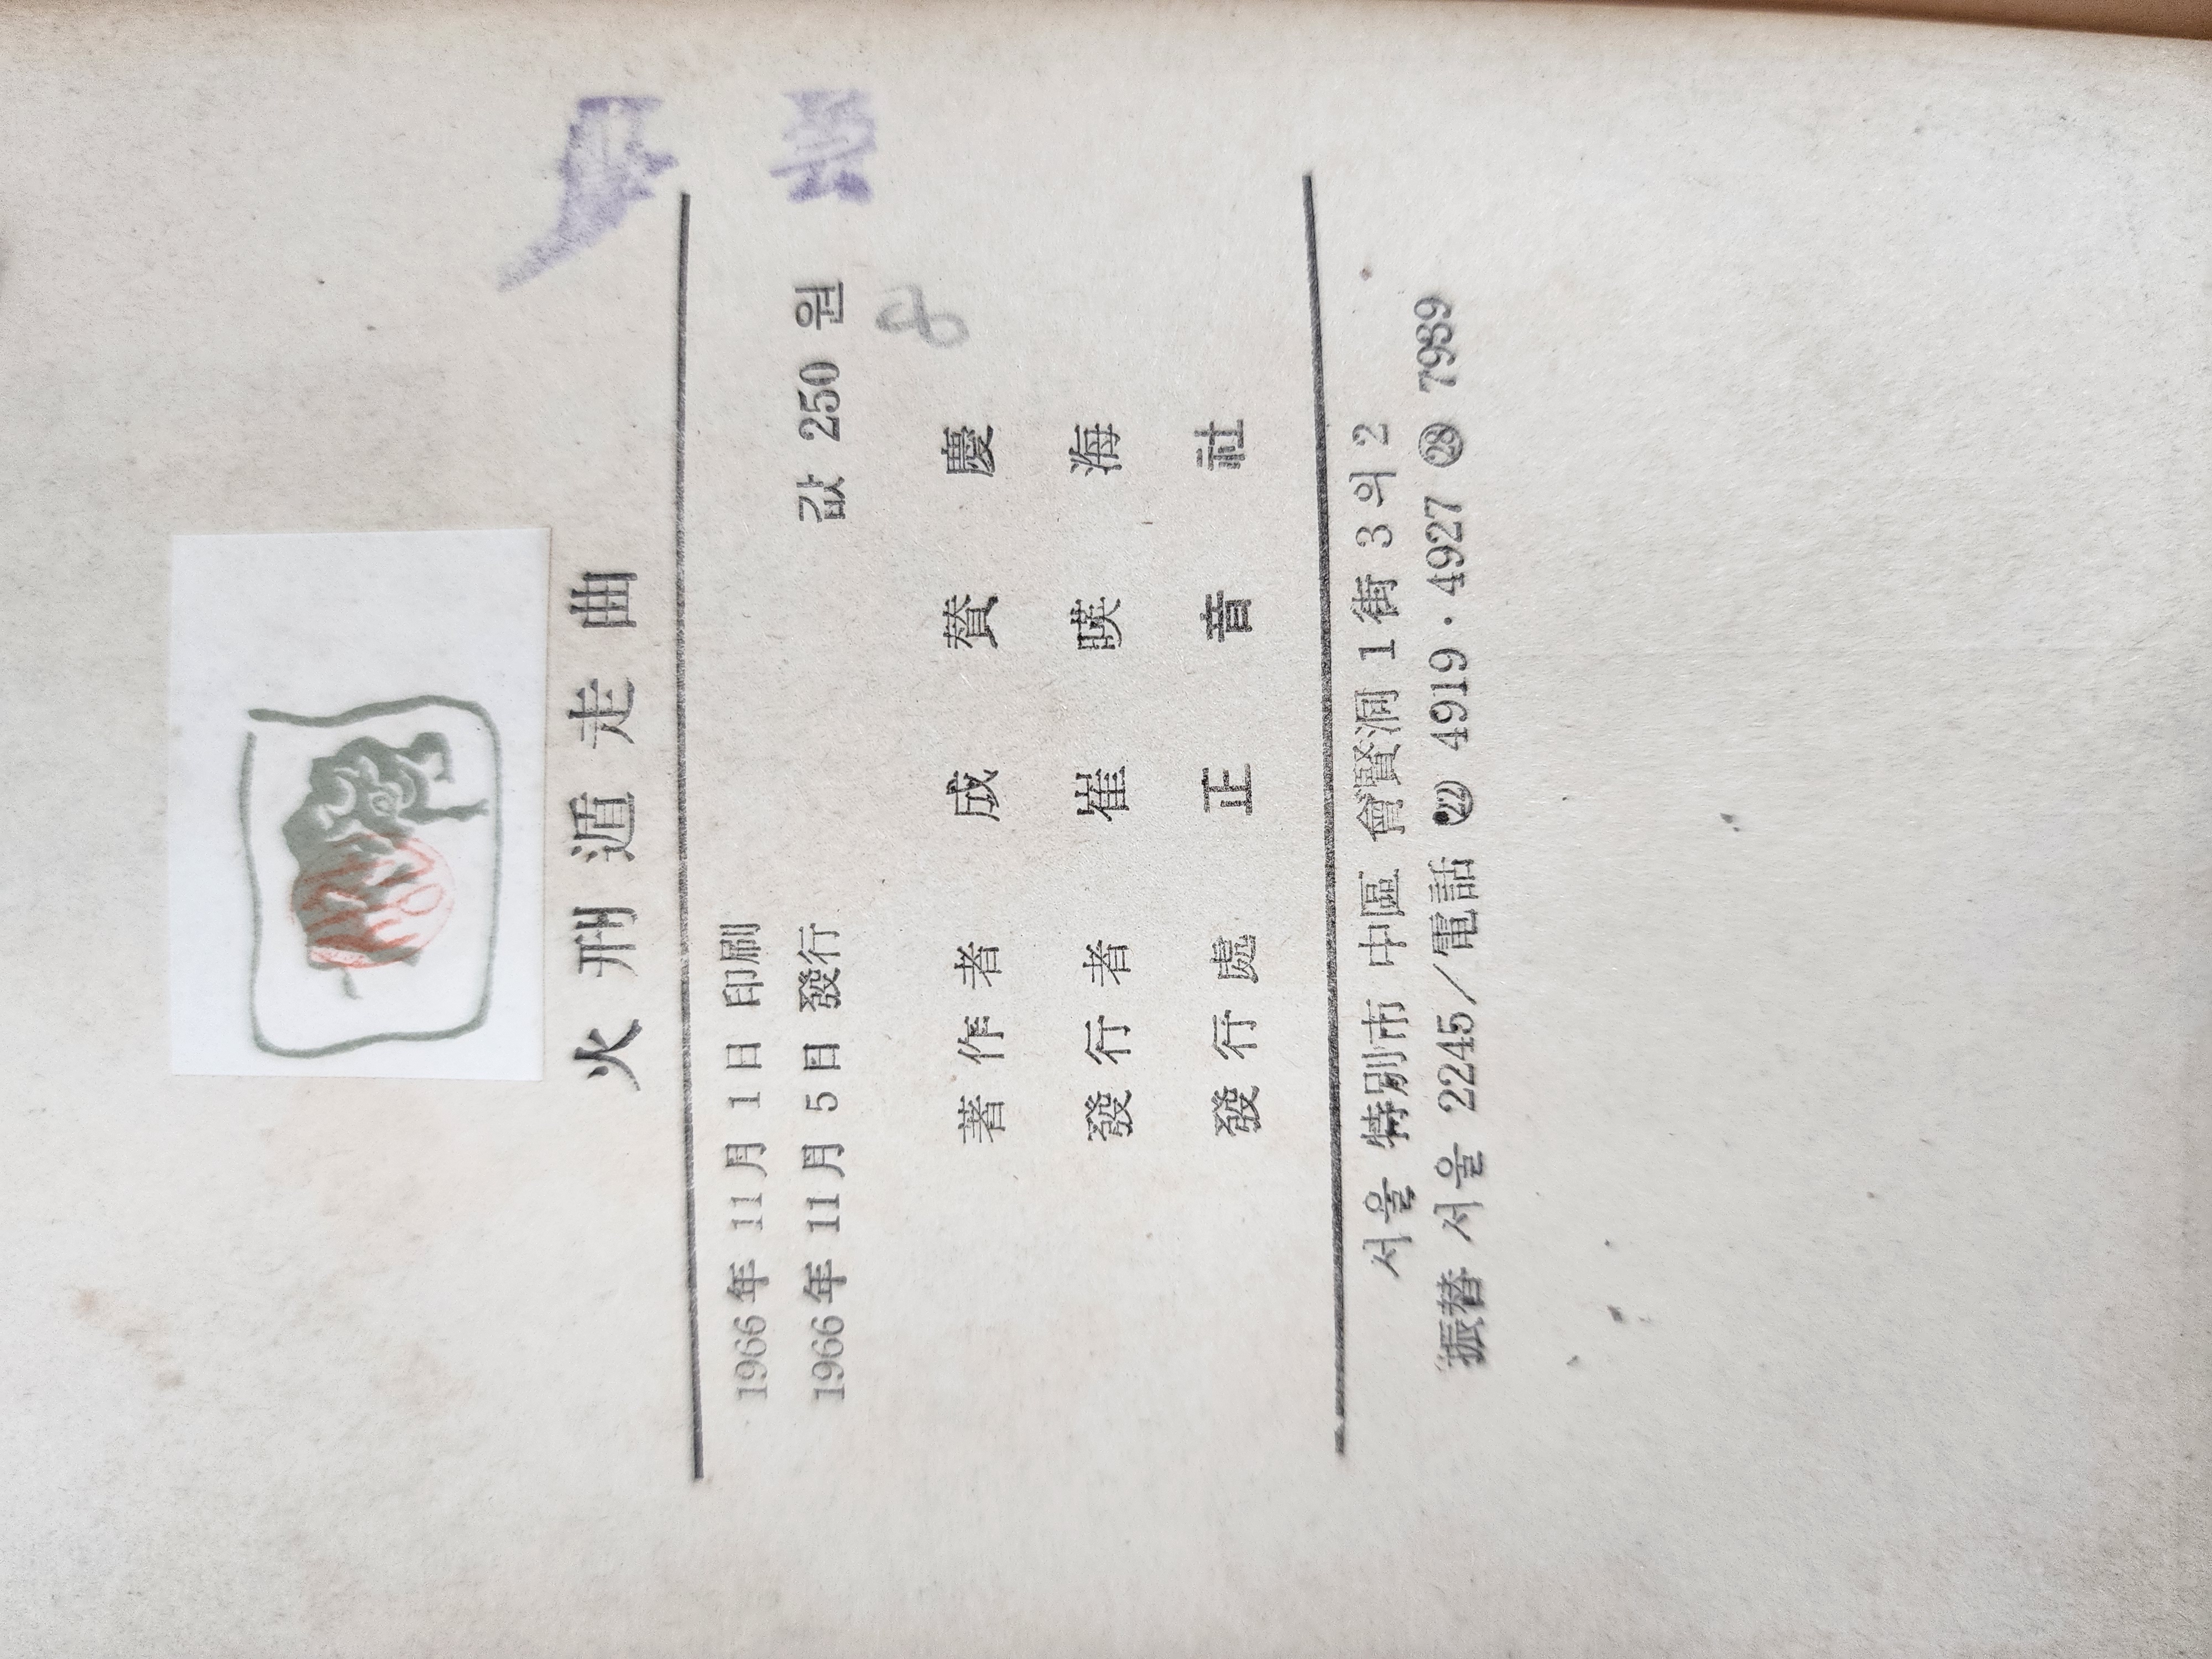 火刑遁走曲
1966年 11月 1日 印刷
1966年 11月 5日 發行
값 250 원
8
著作者 成賛慶
發行者 崔暎海
發行處 正音社
서울 特別市 中區 會賢洞 1街 3의 2
振替 서울 2245/電話 ㉒ 4919·4927 ㉘ 7989